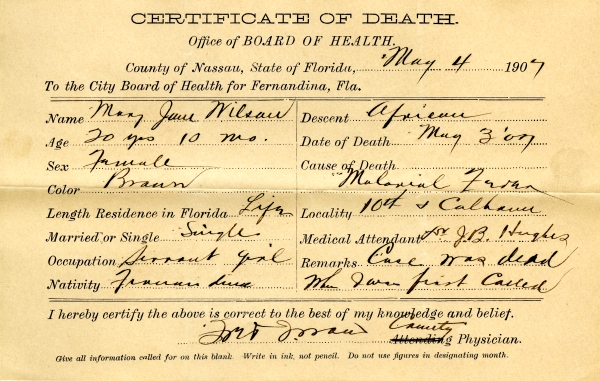 CERTIFICATE OF DEATH.
Office of BOARD OF HEALTH.
County of Nassau, State of Florida, May 4 1907
To the City Board of Health for Fernandina, Fla.
Name Mary Jane Wilson
Age 20 yrs 10 mo.
Sex Female
Color Brown
Length Residence in Florida Life
Married or Single Single
Occupation Servant girl
Nativity Fernandina
Descent African
Date of Death May 3 '07
Cause of Death
Malarial Fever
Locality 10th & Calhoun
Medical Attendant Dr J.B. Hughes
Remarks Case was dead
When I was first Called
I hereby certify the above is correct to the best of my knowledge and belief.
County
Attending Physician.
Give all information called for on this blank. Write in ink, not pencil. Do not use figures in designating month.